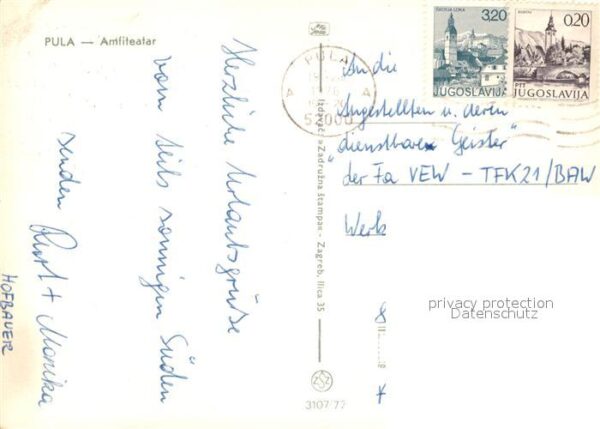 PULA — Amfiteatar
Herzliche Urlaubsgrüße
vom stets sonnigen Süden
senden Kurt + Monika
HOFBAUER
Izdavač: »Zadružna štampa« - Zagreb, Ilica 35
3107/77
PULA
A A
52000
ŠKOFJA LOKA
3.20
JUGOSLAVIJA
BOHINJ
0.20
PTT
JUGOSLAVIJA
An die
Angestellten u. deren
"dienstbaren Geister"
der Fa VEW - TFK21/BAW
Werk
8
privacy protection
Datenschutz